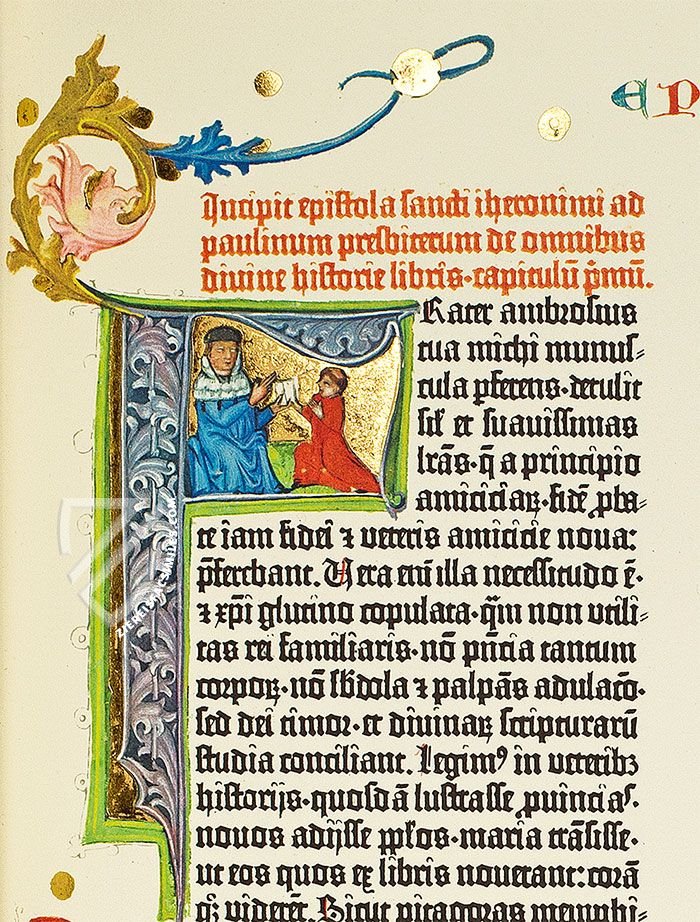 E P
Incipit epistola sancti iheronimi ad
paulinum presbiterum de omnibus
divine historie libris·capitulū p̄mū.
Frater ambrosius
tua michi munus-
cula p̄ferens·detulit
sil̄ et suavissimas
lrās·q̄ a principio
amiciciaꝝ·fidē ꝓba-
te iam fidei ⁊ veteris amicicie nova:
p̄ferebant. Vera enī illa necessitudo ē·
⁊ xp̄i glutino copulata·q̄m non utili-
tas rei familiaris·nō p̄ntia tantum
corpoꝝ·nō sbdola ⁊ palpās adulaco·
sed dei timor·et divinaꝝ scripturarū
studia conciliant. Legimꝰ in veteribꝫ
historijs·quosdā lustrasse ꝓuincias·
novos adijsse pplos·maria trāsisse·
ut eos quos ex libris noverant:corā
qꝫ viderēt. Sicut pitagoras memphi-
ZIEREIS FACSIMILES.COM